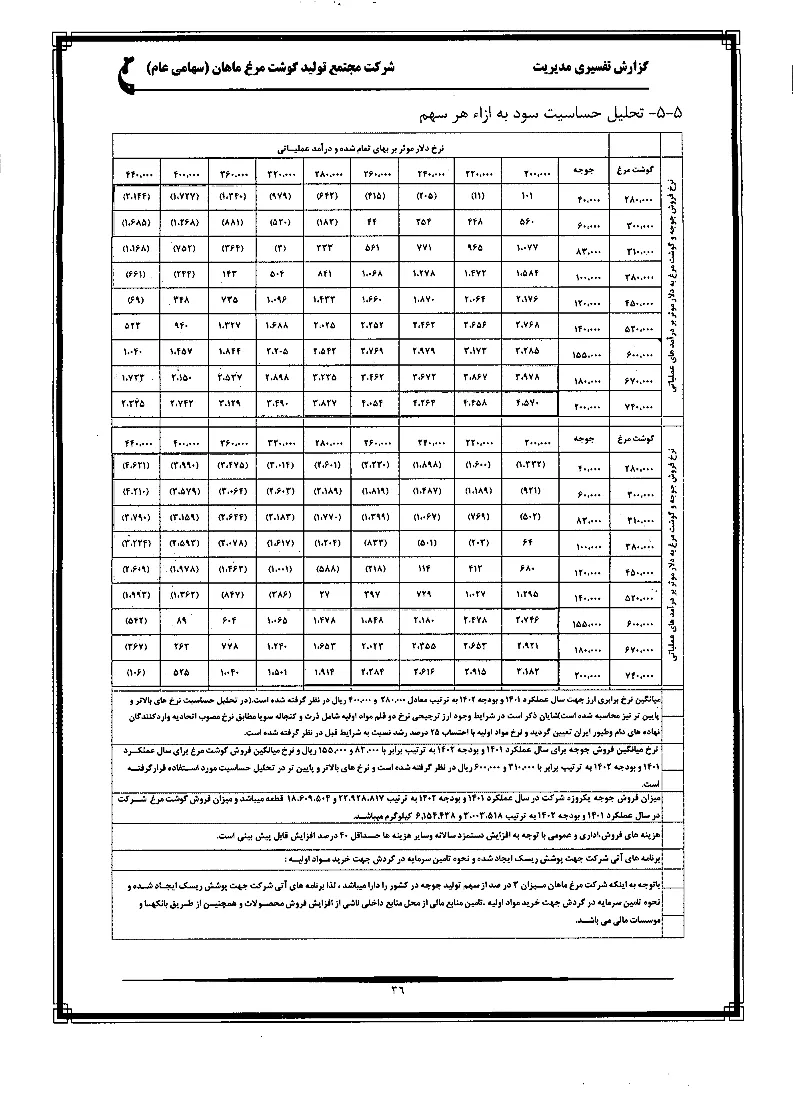 گزارش تفسیری مدیریت
شرکت مجتمع تولید گوشت مرغ ماهان (سهامی عام)
۵-۵- تحلیل حساسیت سود به ازاء هر سهم
نرخ دلار موثر بر بهای تمام شده و درآمد عملیاتی
گوشت مرغ جوجه ۲۰۰,۰۰۰ ۲۲۰,۰۰۰ ۲۴۰,۰۰۰ ۲۶۰,۰۰۰ ۲۸۰,۰۰۰ ۳۲۰,۰۰۰ ۳۶۰,۰۰۰ ۴۰۰,۰۰۰ ۴۴۰,۰۰۰
۲۸۰,۰۰۰ ۴۰,۰۰۰ ۱۰۱ (۱۱) (۲۰۵) (۴۱۵) (۶۴۲) (۹۷۹) (۱,۳۴۰) (۱,۷۲۷) (۲,۱۴۴)
۳۰۰,۰۰۰ ۶۰,۰۰۰ ۵۶۰ ۴۴۸ ۲۵۴ ۴۴ (۱۸۳) (۵۲۰) (۸۸۱) (۱,۲۶۸) (۱,۶۸۵)
۳۱۰,۰۰۰ ۸۳,۰۰۰ ۱,۰۷۷ ۹۶۵ ۷۷۱ ۵۶۱ ۳۳۳ (۳) (۳۶۴) (۷۵۲) (۱,۱۶۸)
۳۸۰,۰۰۰ ۱۰۰,۰۰۰ ۱,۵۸۴ ۱,۴۷۲ ۱,۲۷۸ ۱,۰۶۸ ۸۴۱ ۵۰۴ ۱۴۳ (۲۴۴) (۶۶۱)
۴۵۰,۰۰۰ ۱۲۰,۰۰۰ ۲,۱۷۶ ۲,۰۶۴ ۱,۸۷۰ ۱,۶۶۰ ۱,۴۳۳ ۱,۰۹۶ ۷۳۵ ۳۴۸ (۶۹)
۵۲۰,۰۰۰ ۱۴۰,۰۰۰ ۲,۷۶۸ ۲,۶۵۶ ۲,۴۶۲ ۲,۲۵۲ ۲,۰۲۵ ۱,۶۸۸ ۱,۳۲۷ ۹۴۰ ۵۲۳
۶۰۰,۰۰۰ ۱۵۵,۰۰۰ ۳,۲۸۵ ۳,۱۷۳ ۲,۹۷۹ ۲,۷۶۹ ۲,۵۴۲ ۲,۲۰۵ ۱,۸۴۴ ۱,۴۵۷ ۱,۰۴۰
۶۷۰,۰۰۰ ۱۸۰,۰۰۰ ۳,۹۷۸ ۳,۸۶۷ ۳,۶۷۲ ۳,۴۶۲ ۳,۲۳۵ ۲,۸۹۸ ۲,۵۳۷ ۲,۱۵۰ ۱,۷۳۳
۷۴۰,۰۰۰ ۲۰۰,۰۰۰ ۴,۵۷۰ ۴,۴۵۸ ۴,۲۶۴ ۴,۰۵۴ ۳,۸۲۷ ۳,۴۹۰ ۳,۱۲۹ ۲,۷۴۲ ۲,۳۲۵
نرخ فروش جوجه و گوشت مرغ به دلار موثر بر درآمد های عملیاتی
گوشت مرغ جوجه ۲۰۰,۰۰۰ ۲۲۰,۰۰۰ ۲۴۰,۰۰۰ ۲۶۰,۰۰۰ ۲۸۰,۰۰۰ ۳۲۰,۰۰۰ ۳۶۰,۰۰۰ ۴۰۰,۰۰۰ ۴۴۰,۰۰۰
۲۸۰,۰۰۰ ۴۰,۰۰۰ (۱,۳۳۲) (۱,۶۰۰) (۱,۸۹۸) (۲,۲۳۰) (۲,۶۰۱) (۳,۰۱۴) (۳,۴۷۵) (۳,۹۹۰) (۴,۶۲۱)
۳۰۰,۰۰۰ ۶۰,۰۰۰ (۹۲۱) (۱,۱۸۹) (۱,۴۸۷) (۱,۸۱۹) (۲,۱۸۹) (۲,۶۰۳) (۳,۰۶۴) (۳,۵۷۹) (۴,۲۱۰)
۳۱۰,۰۰۰ ۸۳,۰۰۰ (۵۰۲) (۷۶۹) (۱,۰۶۷) (۱,۳۹۹) (۱,۷۷۰) (۲,۱۸۳) (۲,۶۴۴) (۳,۱۵۹) (۳,۷۹۰)
۳۸۰,۰۰۰ ۱۰۰,۰۰۰ ۶۴ (۲۰۳) (۵۰۱) (۸۳۳) (۱,۲۰۴) (۱,۶۱۷) (۲,۰۷۸) (۲,۵۹۳) (۳,۲۲۴)
۴۵۰,۰۰۰ ۱۲۰,۰۰۰ ۶۸۰ ۴۱۲ ۱۱۴ (۲۱۸) (۵۸۸) (۱,۰۰۱) (۱,۴۶۳) (۱,۹۷۸) (۲,۶۰۹)
۵۲۰,۰۰۰ ۱۴۰,۰۰۰ ۱,۲۹۵ ۱,۰۲۷ ۷۲۹ ۳۹۷ ۲۷ (۳۸۶) (۸۴۷) (۱,۳۶۲) (۱,۹۹۳)
۶۰۰,۰۰۰ ۱۵۵,۰۰۰ ۲,۷۴۶ ۲,۴۷۸ ۲,۱۸۰ ۱,۸۴۸ ۱,۴۷۸ ۱,۰۶۵ ۶۰۴ ۸۹ (۵۴۲)
۶۷۰,۰۰۰ ۱۸۰,۰۰۰ ۲,۹۲۱ ۲,۶۵۳ ۲,۳۵۵ ۲,۰۲۳ ۱,۶۵۳ ۱,۲۴۰ ۷۷۸ ۲۶۳ (۳۶۷)
۷۴۰,۰۰۰ ۲۰۰,۰۰۰ ۳,۱۸۲ ۲,۹۱۵ ۲,۶۱۶ ۲,۲۸۴ ۱,۹۱۴ ۱,۵۰۱ ۱,۰۴۰ ۵۲۵ (۱۰۶)
نرخ فروش جوجه و گوشت مرغ به دلار موثر بر درآمد های عملیاتی
میانگین نرخ برابری ارز جهت سال عملکرد ۱۴۰۱ و بودجه ۱۴۰۲ به ترتیب معادل ۲۸۰,۰۰۰ و ۴۰۰,۰۰۰ ریال در نظر گرفته شده است.(در تحلیل حساسیت نرخ های بالاتر و
پایین تر نیز محاسبه شده است)شایان ذکر است در شرایط وجود ارز ترجیحی نرخ دو قلم مواد اولیه شامل ذرت و کنجاله سویا مطابق نرخ مصوب اتحادیه واردکنندگان
نهاده های دام وطیور ایران تعیین گردید و نرخ مواد اولیه با احتساب ۲۵ درصد رشد نسبت به شرایط قبل در نظر گرفته شده است.
نرخ میانگین فروش جوجه برای سال عملکرد ۱۴۰۱ و بودجه ۱۴۰۲ به ترتیب برابر با ۸۳,۰۰۰ و ۱۵۵,۰۰۰ ریال و نرخ میانگین فروش گوشت مرغ برای سال عملکرد
۱۴۰۱ و بودجه ۱۴۰۲ به ترتیب برابر با ۳۱۰,۰۰۰ و ۶۰۰,۰۰۰ ریال در نظر گرفته شده است و نرخ های بالاتر و پایین تر در تحلیل حساسیت مورد استفاده قرارگرفته
است.
میزان فروش جوجه یکروزه شرکت در سال عملکرد ۱۴۰۱ و بودجه ۱۴۰۲ به ترتیب ۲۲,۹۲۸,۸۱۷ و ۱۸,۶۰۹,۵۰۴ قطعه میباشد و میزان فروش گوشت مرغ شرکت
در سال عملکرد ۱۴۰۱ و بودجه ۱۴۰۲ به ترتیب ۳,۰۰۳,۵۱۸ و ۶,۱۵۴,۴۳۸ کیلوگرم میباشد.
هزینه های فروش،اداری و عمومی با توجه به افزایش دستمزد سالانه وسایر هزینه ها حداقل ۴۰ درصد افزایش قابل پیش بینی است.
برنامه های آتی شرکت جهت پوشش ریسک ایجاد شده و نحوه تامین سرمایه در گردش جهت خرید مواد اولیه :
باتوجه به اینکه شرکت مرغ ماهان میزان ۲ در صد از سهم تولید جوجه در کشور را دارا میباشد ، لذا برنامه های آتی شرکت جهت پوشش ریسک ایجاد شده و
نحوه تامین سرمایه در گردش جهت خرید مواد اولیه ،تامین منابع مالی از محل منابع داخلی ناشی از افزایش فروش محصولات و همچنین از طریق بانکها و
موسسات مالی می باشد.
۳۶